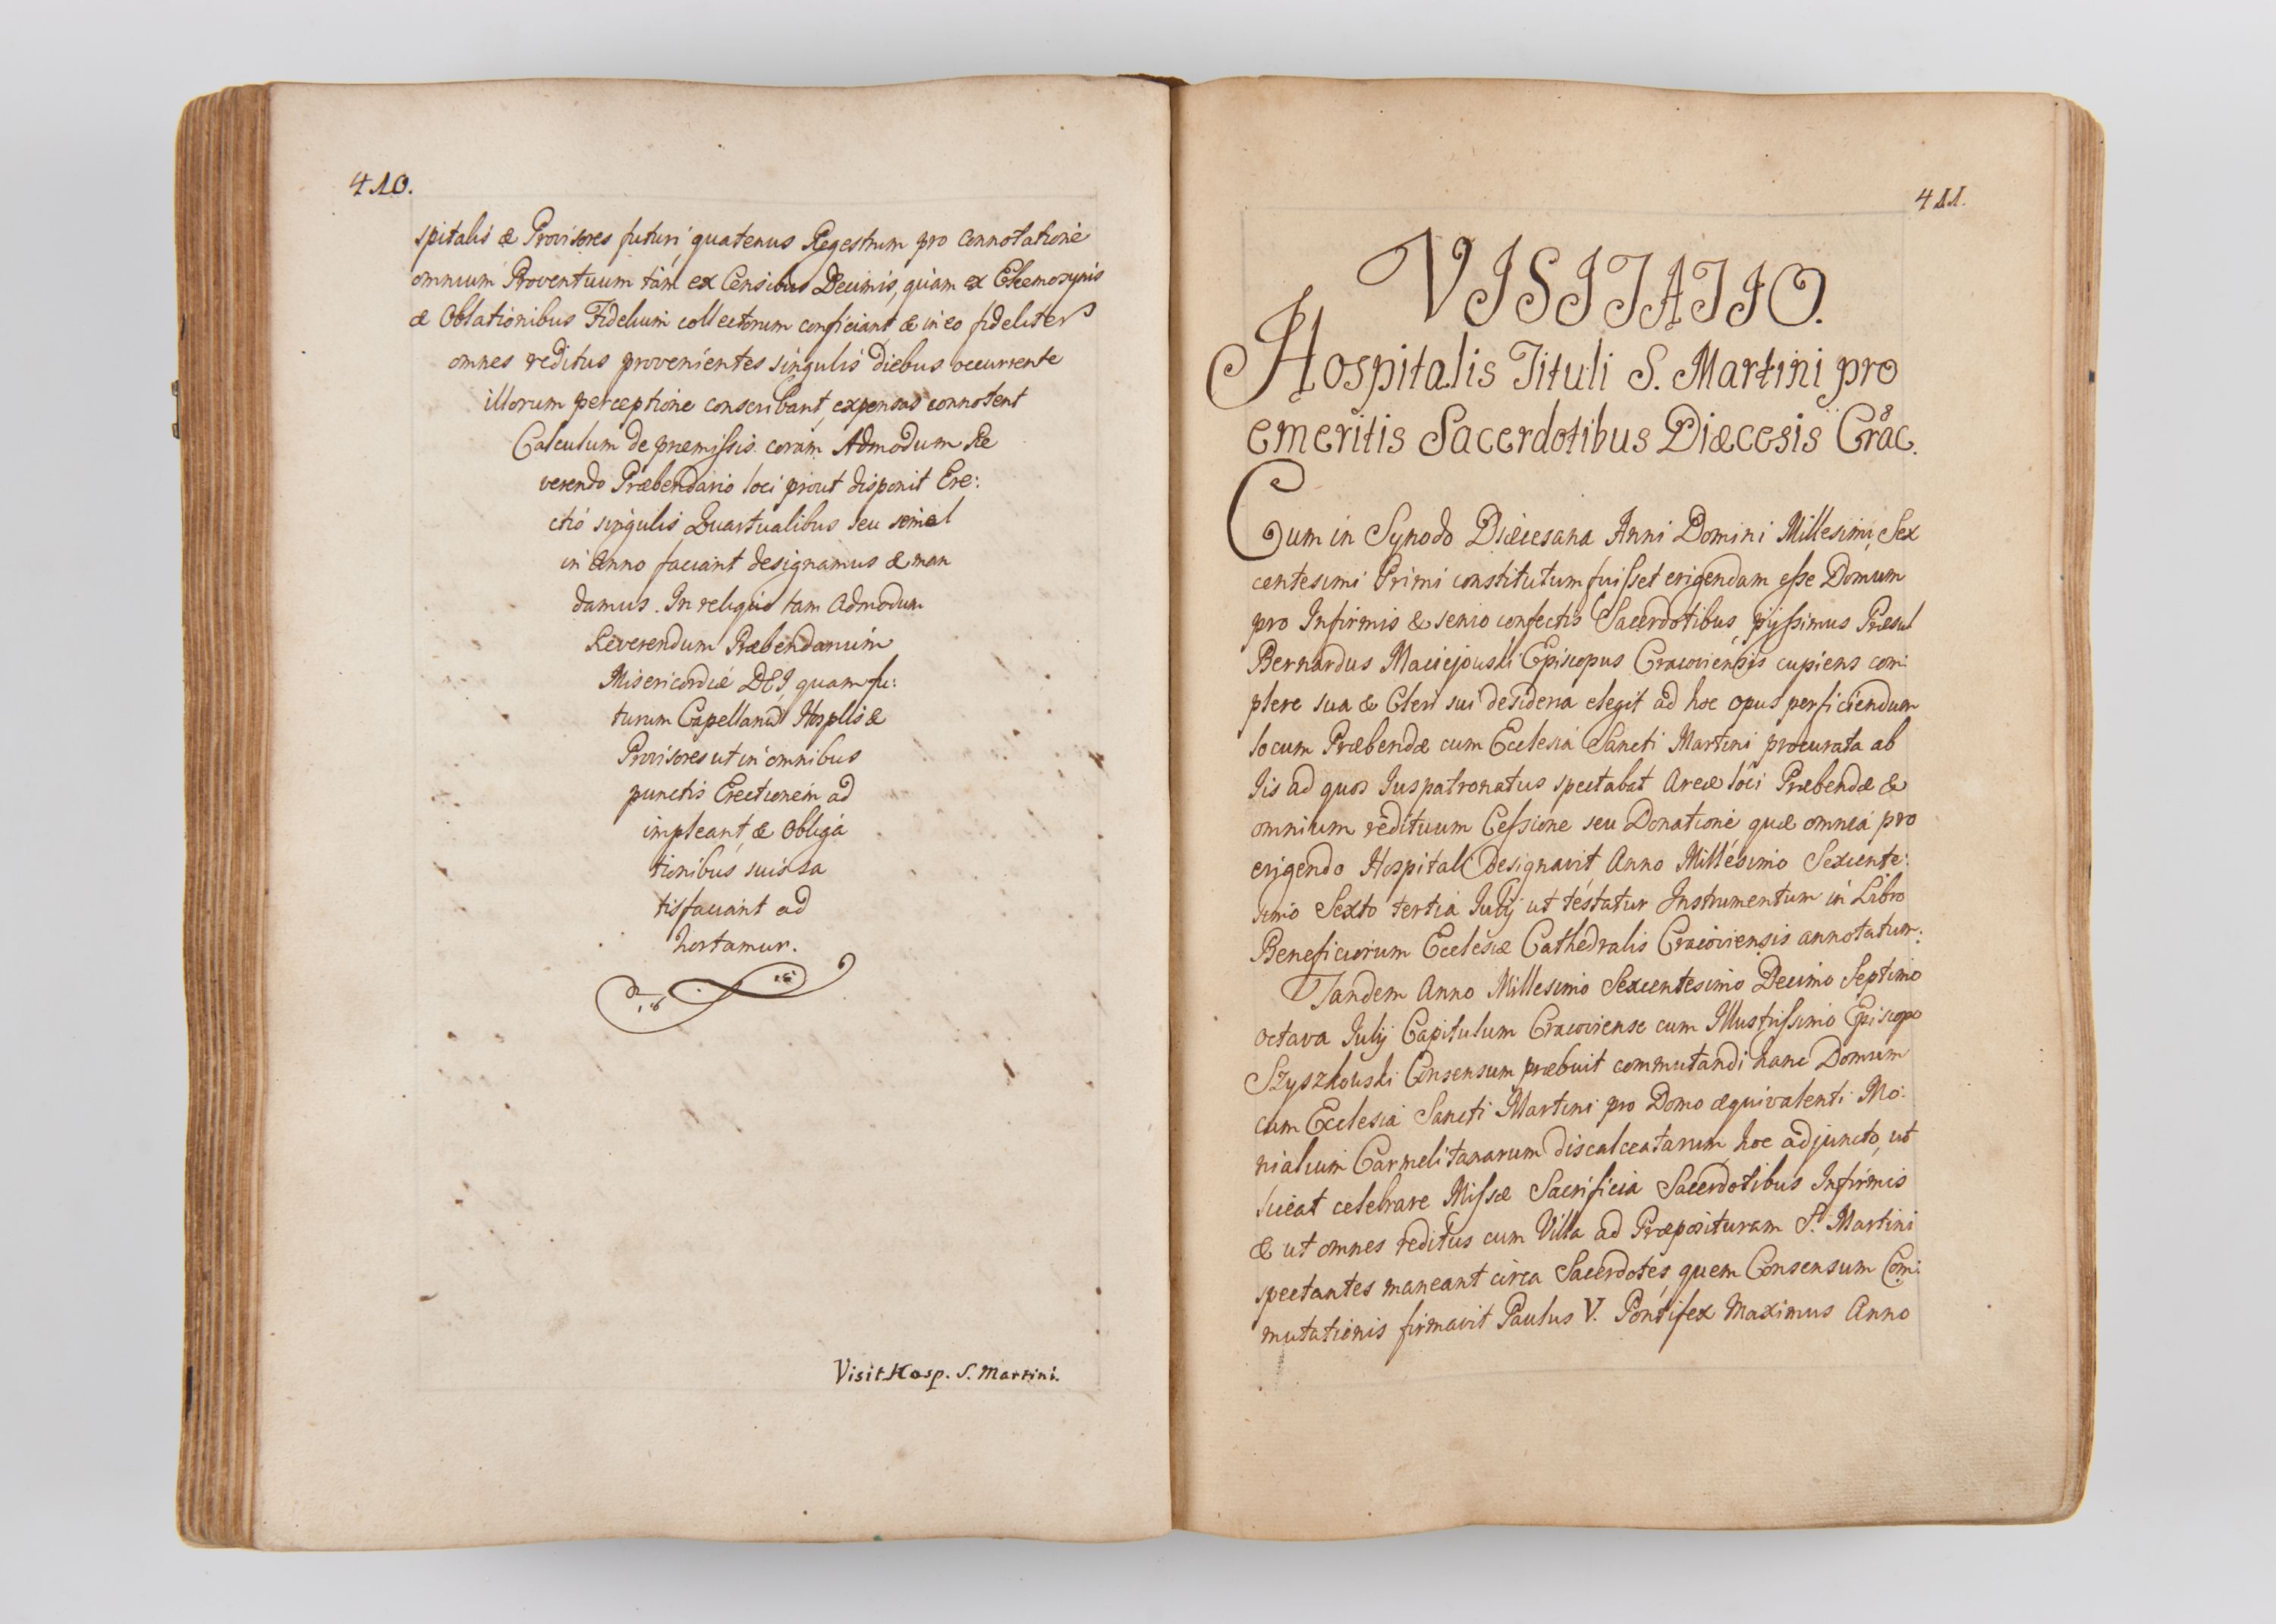 410.
spitalis & Provisores futuri, quatenus Regestrum pro Connotatione
omnium Proventuum tam ex Censibus Decimis, quam ex Eleemosynis
& Oblationibus Fidelium collectorum conficiant & in eo fideliter
omnes reditus provenientes singulis diebus occurrente
illorum perceptione conscribant, expensas connotent
Calculum de præmissis coram Admodum Re
verendo Præbendario loci prout disponit Ere:
ctio singulis Quartualibus seu semel
in Anno faciant designamus & man
damus. In reliquo tam Admodum
Reverendum Præbendarium
Misericordiæ DEI, quam fu:
turum Capellanum Hosplis &
Provisores ut in omnibus
punctis Erectionem ad
impleant, & Obliga
tionibus suis sa
tisfaciant ad
hortamur.
Visit. Hosp. S. Martini.
411.
VISITATIO.
Hospitalis Tituli S. Martini pro
emeritis Sacerdotibus Diæcesis Crac.
Cum in Synodo Diæcesana Anni Domini Millesimi Sex
centesimi Primi constitutum fuisset erigendam esse Domum
pro Infirmis & senio confectis Sacerdotibus, pijssimus Præsul
Bernardus Maciejouski Episcopus Cracoviensis cupiens com:
plere sua & Cleri sui desideria elegit ad hoc opus perficiendum
locum Præbendæ cum Ecclesia Sancti Martini procurata ab
Iis ad quos Iuspatronatus spectabat Areæ loci Præbendæ &
omnium redituum Cessione seu Donatione quæ omnia pro
erigendo Hospitali designavit Anno Millesimo Sexcente:
simo Sexto tertia Iulij ut testatur Instrumentum in Libro
Beneficiorum Ecclesiæ Cathedralis Cracoviensis annotatum.
Tandem Anno Millesimo Sexcentesimo Decimo Septimo
octava Iulij Capitulum Cracoviense cum Illustrissimo Episcopo
Szyszkouski Consensum præbuit commutandi hanc Domum
cum Ecclesia Sancti Martini pro Domo æquivalenti Mo:
nialium Carmelitanarum discalceatarum, hoc adjuncto, ut
liceat celebrare Missæ Sacrificia Sacerdotibus Infirmis
& ut omnes reditus cum Villa ad Præposituram S. Martini
spectantes maneant circa Sacerdotes, quem Consensum Com:
mutationis firmavit Paulus V. Pontifex Maximus Anno